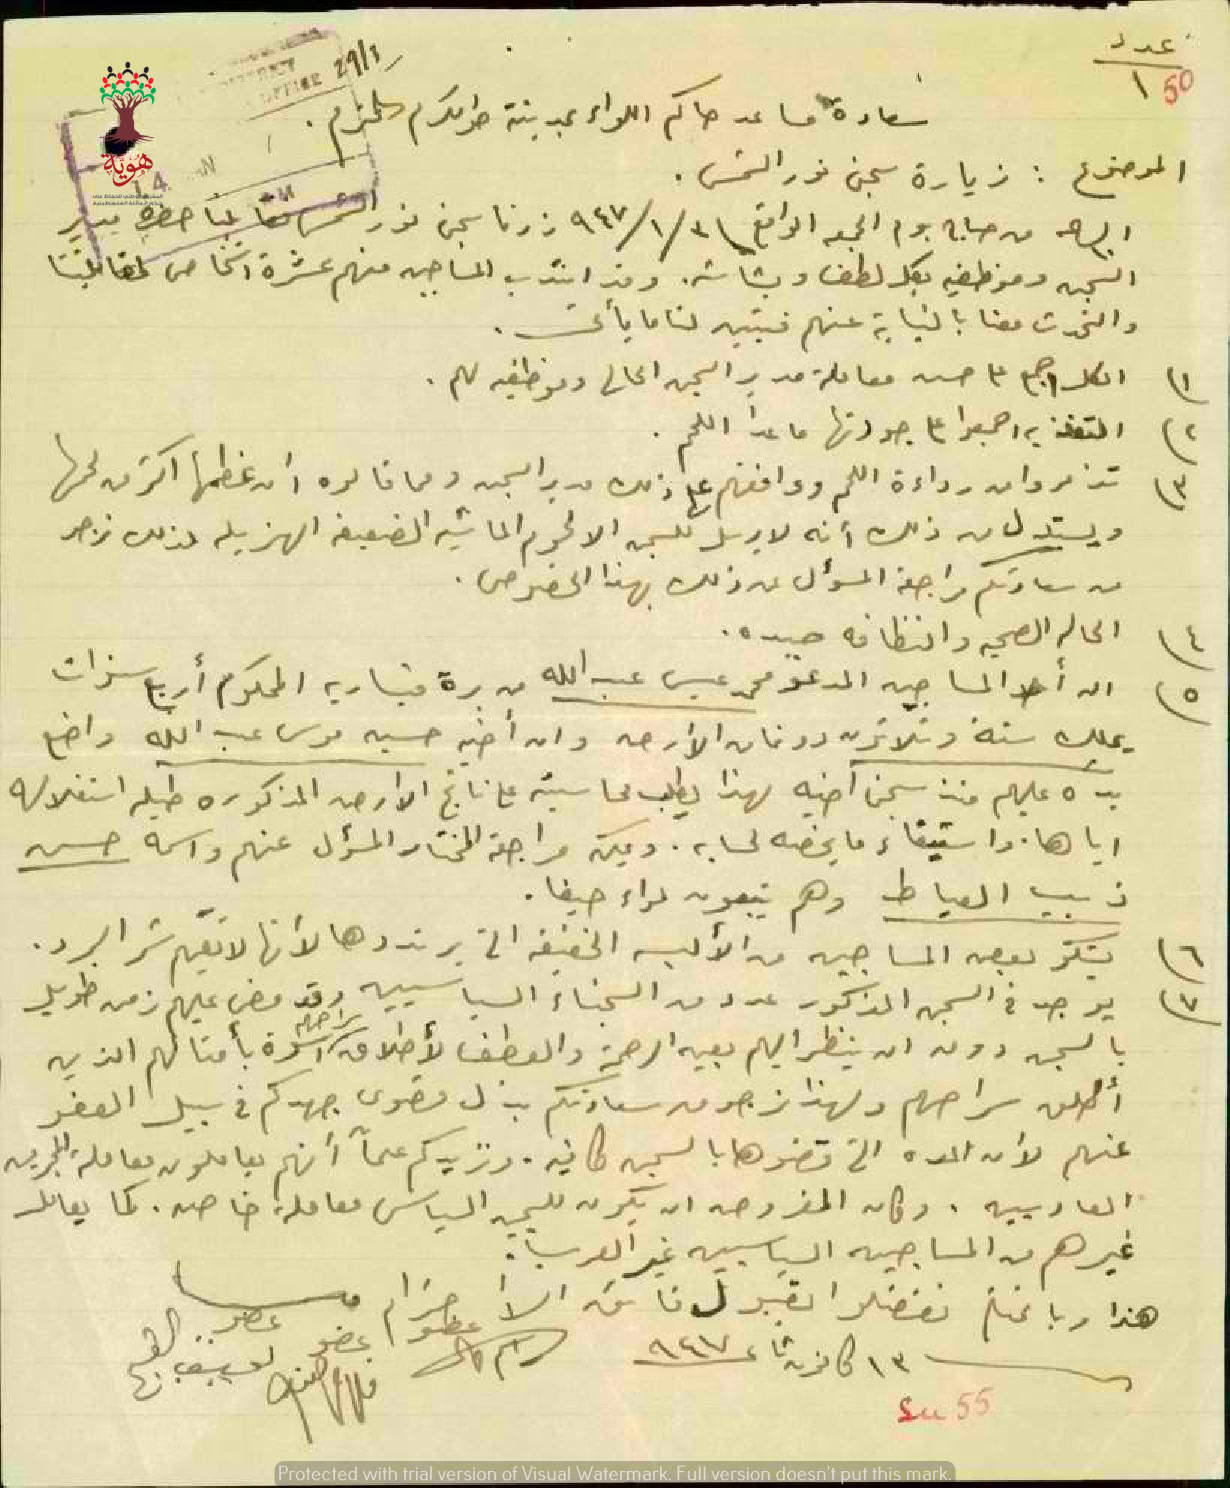 عدد
١
50
29/1
DISTRICT
OFFICE
14
هوية
سعادة مساعد حاكم اللواء بمدينة طولكرم المحترم .
الموضوع : زيارة سجن نور الشمس .
صباح يوم الجمعه الواقع ٣١/١/٩٤٧ زرنا سجن نور الشمس مدير
السجن وموظفيه بكل لطف وبشاشه . وقد انتدب المساجين منهم عشرة اشخاص لمقابلتنا
والتحدث معنا بالنيابة عنهم فتبين لنا ما يأتي .
١) الكل اجمع على حسن معاملة مدير السجن الحالي وموظفيه لهم .
٢) التغذيه اجمعوا على جودتها ما عدا اللحم .
٣) تذمروا من رداءة اللحم ووافقهم على ذلك مدير السجن ومما قالوه ان عظمها اكثر من لحمها
ويستدل من ذلك أنه لا يرسل للسجن الا لحوم الماشيه الضعيفه الهزيله لذلك نرجو
من سعادتكم مراجعة المسؤل عن ذلك بهذا الخصوص .
٤) الحاله الصحيه والنظافه جيده .
٥) ان أحد المساجين المدعو محمد عيسى عبد الله من برة قيساريه المحكوم أربع سنوات
يملك ستة وثلاثون دونمات الأرض وان أخيه حسين موسى عبد الله واضع
يده عليهم منذ سجن اخيه لهذا يطلب محاسبته على ناتج الارض المذكوره طيلة استغلاله
اياها . واستيفاء ما يخصه لحسابه . ويمكن مراجعة المختار المسؤل عنهم واسمه حسن
ذيب العياط وهم يتبعون لواء حيفا .
٦) يشكو بعض المساجين من الألبسه الخفيفه التي يرتدوها لأنها لا تقيهم شر البرد .
٧) يوجد في السجن المذكور عدد من السجناء السياسيين وقد مضى عليهم زمن طويل
بالسجن دون ان ينظر اليهم بعين الرحمة والعطف لأطلاق سراحهم اسوة بأمثالهم الذين
أطلق سراحهم ولهذا نرجو من سعادتكم بذل قصوى جهدكم في سبيل العفو
عنهم لأن المده التي قضوها بالسجن كافيه . ونزيدكم علماً أنهم يعاملون معاملة المجرمين
العاديين . وكان المفروض ان يكون للسجين السياسي معاملة خاصه . كما يعامل
غيرهم من المساجين السياسيين غير العرب .
هذا وبالختام تفضلوا بقبول فائق الاحترام
عضو عضو عضو
٣١ كانون ثاني ٩٤٧
55
Protected with trial version of Visual Watermark. Full version doesn't put this mark.